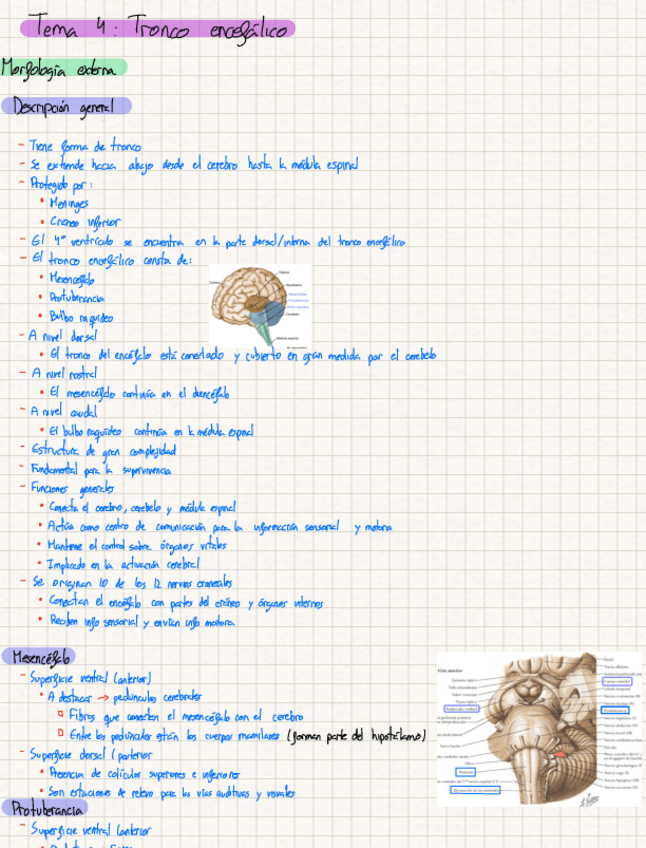 Tema 4: Tronco encefálico
Morfología externa
Descripción general
- Tiene forma de tronco
- Se extiende hacia abajo desde el cerebro hasta la médula espinal
- Protegido por:
• Meninges
• Cráneo inferior
- El 4º ventrículo se encuentra en la parte dorsal/interna del tronco encefálico
- El tronco encefálico consta de:
• Mesencéfalo
• Protuberancia
• Bulbo raquídeo
- A nivel dorsal
• El tronco del encéfalo está conectado y cubierto en gran medida por el cerebelo
- A nivel rostral
• El mesencéfalo continúa en el diencéfalo
- A nivel caudal
• El bulbo raquídeo continúa en la médula espinal
- Estructura de gran complejidad
- Fundamental para la supervivencia
- Funciones generales
• Conecta el cerebro, cerebelo y médula espinal
• Actúa como centro de comunicación para la información sensorial y motora
• Mantiene el control sobre órganos vitales
• Implicado en la activación cerebral
- Se originan 10 de los 12 nervios craneales
• Conectan el encéfalo con partes del cráneo y órganos internos
• Reciben info sensorial y envían info motora
Mesencéfalo
- Superficie ventral (anterior)
• A destacar → pedúnculos cerebrales
Fibras que conectan el mesencéfalo con el cerebro
Entre los pedúnculos están los cuerpos mamilares (forman parte del hipotálamo)
- Superficie dorsal (posterior
• Presencia de colículos superiores e inferiores
• Son estaciones de relevo para las vías auditivas y visuales
Vista anterior
Protuberancia
- Superficie ventral (anterior